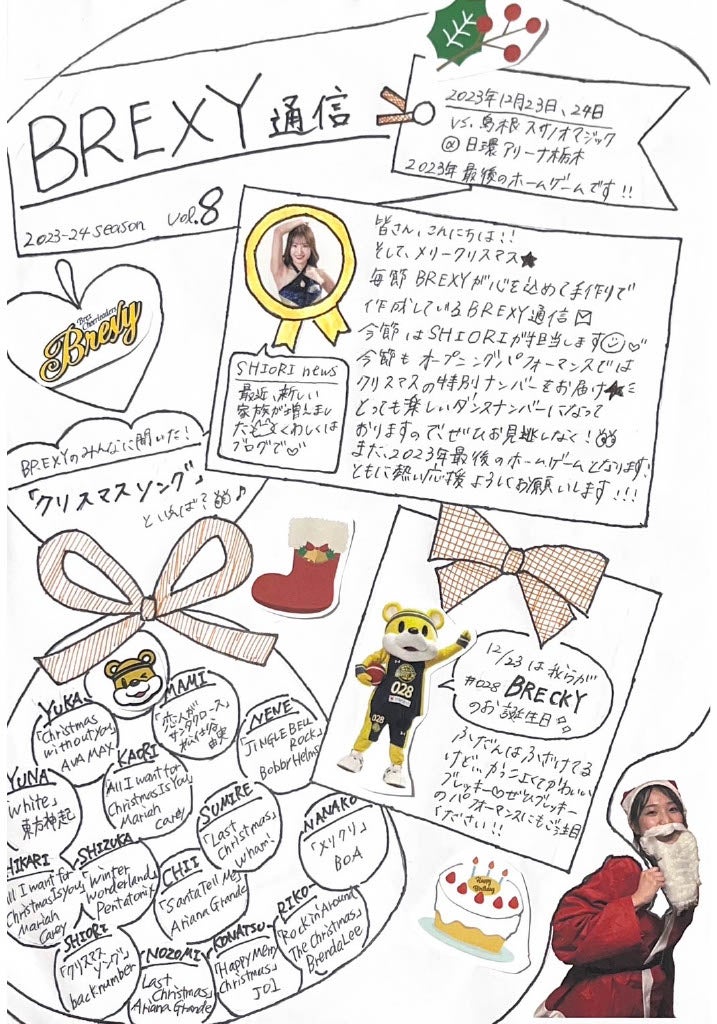 BREXY 通信
2023-24 season vol.8
2023年12月23日、24日
vs. 島根スサノオマジック
@ 日環アリーナ栃木
2023年最後のホームゲームです!!
Brex Cheerleaders
Brexy
皆さん、こんにちは!!
そして、メリークリスマス★
毎節BREXYが心を込めて手作りで
作成しているBREXY通信✉
今節はSHIORIが担当します☺♡
今節もオープニングパフォーマンスでは
クリスマスの特別ナンバーをお届け★
とっても楽しいダンスナンバーになって
おりますので、ぜひお見逃しなく!
また、2023年最後のホームゲームとなります、
ともに熱い応援よろしくお願いします!!!
SHIORI news
最近、新しい
家族が増えまし
た くわしくは
ブログで♡
BREXYのみんなに聞いた!
「クリスマスソング」
といえば?♪
12/23は我らが
#028 BRECKY
のお誕生日
ふだんはふざけてる
けど、かっこよくてかわいい
ブレッキー♡ぜひブレッキー
のパフォーマンスにもご注目
ください!!
028
028
YUKA
「Christmas
without you」
AVA MAX
MAMI
「恋人が
サンタクロース」
松任谷
由実
NENE
「JINGLE BELL
ROCK」
Bobby Helms
YUNA
「White」
東方神起
KAORI
「All I want for
Christmas Is You」
Mariah
Carey
SUMIRE
「Last
Christmas」
Wham!
NANAKO
「メリクリ」
BOA
HIKARI
All I want for
Christmas Is you」
Mariah
Carey
SHIZUKA
「Winter
Wonderland」
Pentatonix
CHII
「Santa Tell Me」
Ariana Grande
RIKO
「Rockin Around
The Christmas」
Brenda Lee
SHIORI
「クリスマス
ソング」
back number
NOZOMI
「Last
Christmas」
Ariana Grande
KONATSU
「Happy Merry
Christmas」
JO1
Happy
Birthday